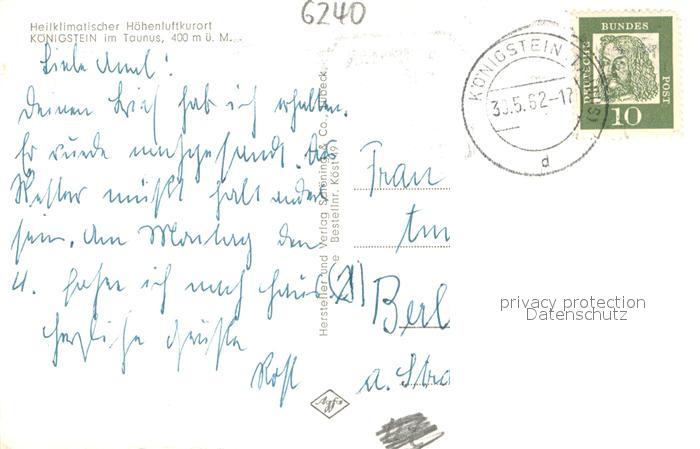 6240
Heilklimatischer Höhenluftkurort
KÖNIGSTEIN im Taunus, 400 m ü. M.
Liebe
Deinen Brief hab ich erhalten.
Er wurde nachgesandt. Das
Wetter müßt halt anders
sein. Am Montag den
4. fahre ich nach Haus
Herzliche Grüße
Hersteller und Verlag Schöning & Co., Lübeck
Bestellnr. Köst 91
Frau
Berl
a. Stra
Agfa
KÖNIGSTEIN
30.5.62-17
d
DEUTSCHE
BUNDES
POST
10
privacy protection
Datenschutz